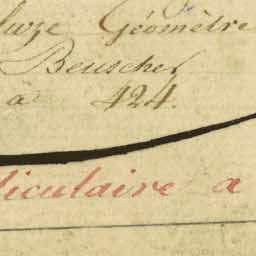 Géomètre
Beuscher
à 424.
diculaire a